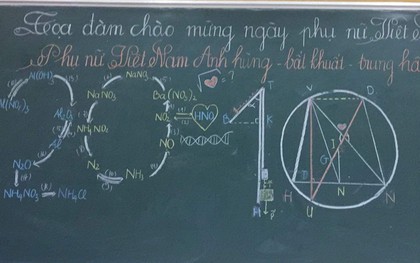 Tọa đàm chào mừng ngày phụ nữ Việt
Phụ nữ Việt Nam Anh hùng - bất khuất - trung hậ
NaNO₃
Al(OH)₃
NaNO₃
Ba(NO₃)₂
Al₂O₃
NH₄NO₂
NO₂
HNO₃
Al
NO
N₂O
N₂
NH₃
NH₄NO₃
NH₄Cl
T
K
V
D
I
G
H
N
N
U